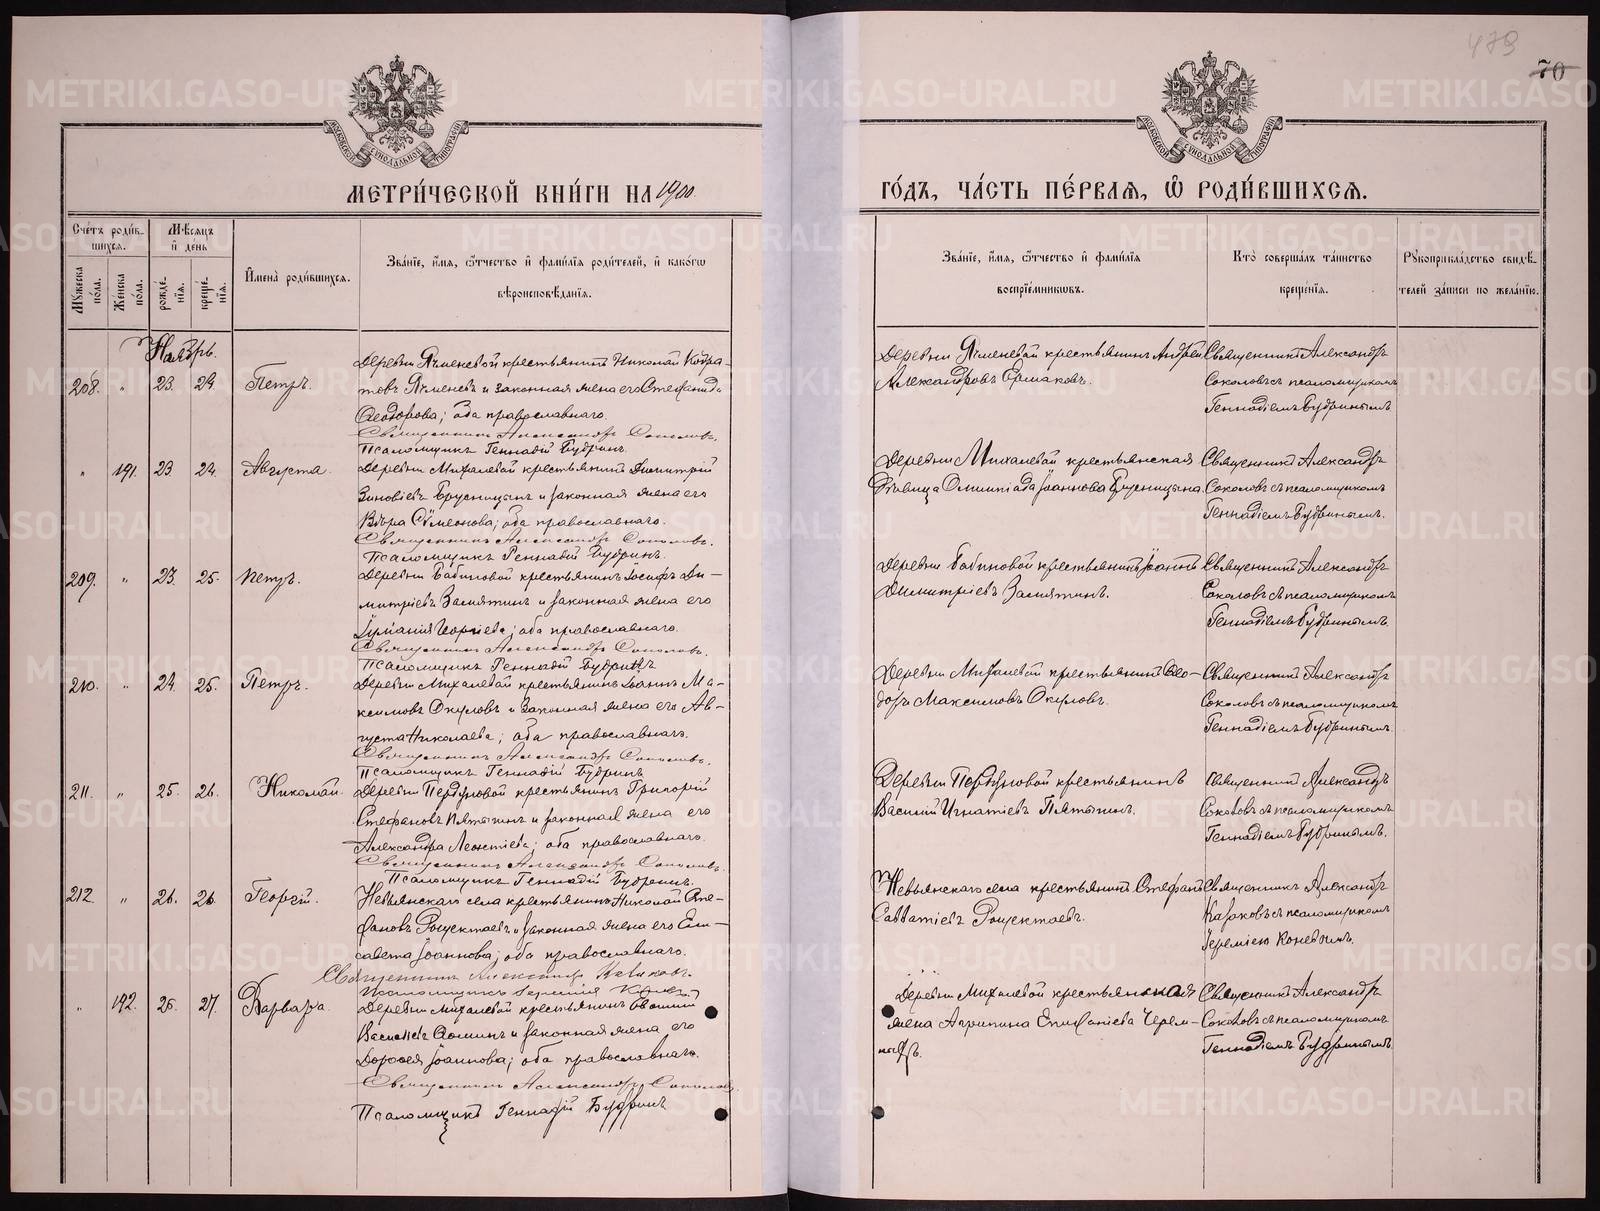 479
70
МОСКОВСКОЙ СУНОДАЛЬНОЙ ТИПОГРАФІИ
МОСКОВСКОЙ СУНОДАЛЬНОЙ ТИПОГРАФІИ
МЕТРИ́ЧЕСКОЙ КНИ́ГИ НА 1900
ГО́ДЪ, ЧА́СТЬ ПЕ́РВАѦ, Ѡ҆ РОДИ́ВШИХСѦ.
Сче́тъ роди́вшихсѧ.
Мꙋ́жеска по́ла.
Же́нска по́ла.
Мѣ́сѧцъ и҆ де́нь
рожде́нїѧ.
креще́нїѧ.
И҆мена̀ роди́вшихсѧ.
Зва́нїе, и҆́мѧ, ѻ҆́тчество и҆ фами́лїѧ роди́телей, и҆ како́гѡ
вѣроисповѣ́данїѧ.
Зва́нїе, и҆́мѧ, ѻ҆́тчество и҆ фами́лїѧ
воспрїе́мникѡвъ.
Кто̀ соверша́лъ та́инство
креще́нїѧ.
Рꙋкоприкла́дство свидѣ́телей за́писи по жела́нїю.
Ноябрь.
208. " 23 24 Петръ.
Деревни Ячменевой крестьянинъ Николай Кодратовъ Ячменевъ и законная жена его Стефанида
Ѳеодорова; оба православнаго.
Священникъ Александръ Соколовъ.
Псаломщикъ Геннадій Будринъ.
Деревни Ячменевой крестьянинъ Андрей
Александровъ Ермаковъ.
Священникъ Александръ
Соколовъ съ псаломщикомъ
Геннадіемъ Будринымъ.
" 191. 23 24. Августа.
Деревни Михалевой крестьянинъ Димитрій
Зиновіевъ Брусницынъ и законная жена его
Вѣра Сѵмеонова; оба православнаго.
Священникъ Александръ Соколовъ.
Псаломщикъ Геннадій Будринъ.
Деревни Михалевой крестьянская
дѣвица Олимпіада Іоаннова Брусницына.
Священникъ Александръ
Соколовъ съ псаломщикомъ
Геннадіемъ Будринымъ.
209. " 23. 25. Петръ.
Деревни Бабиновой крестьянинъ Іосифъ Димитріевъ Замятинъ и законная жена его
православнаго.
Священникъ Александръ Соколовъ.
Псаломщикъ Геннадій Будринъ
Деревни Бабиновой крестьянинъ Іоаннъ
Димитріевъ Замятинъ.
Священникъ Александръ
Соколовъ съ псаломщикомъ
Геннадіемъ Будринымъ.
210. " 24. 25. Петръ.
Деревни Михалевой крестьянинъ Іоаннъ Максимовъ Окуловъ и законная жена его Августа Николаева; оба православнаго.
Священникъ Александръ Соколовъ.
Псаломщикъ Геннадій Будринъ
Деревни Михалевой крестьянинъ Ѳеодоръ Максимовъ Окуловъ.
Священникъ Александръ
Соколовъ съ псаломщикомъ
Геннадіемъ Будринымъ.
211. " 25. 26. Николай.
Деревни Пердуновой крестьянинъ Григорій
Стефановъ Пятыгинъ и законная жена его
Александра Леонтіева; оба православнаго.
Священникъ Александръ Соколовъ.
Псаломщикъ Геннадій Будринъ.
Деревни Пердуновой крестьянинъ
Василій Игнатіевъ Пятыгинъ.
Священникъ Александръ
Соколовъ съ псаломщикомъ
Геннадіемъ Будринымъ.
212 " 26. 26. Георгій.
Невьянскаго села крестьянинъ Николай Стефановъ Рощектаевъ и законная жена его Елисавета Іоаннова; оба православнаго.
Священникъ Александръ Казаковъ.
Псаломщикъ Іеремія Коневъ
Невьянскаго села крестьянинъ Стефанъ
Савватіевъ Рощектаевъ.
Священникъ Александръ
Казаковъ съ псаломщикомъ
Іереміею Коневымъ.
" 192. 26. 27. Варвара.
Деревни Михалевой крестьянинъ
Василіевъ и законная жена его
Дороѳея Іоаннова; оба православнаго.
Священникъ Александръ Соколовъ
Псаломщикъ Геннадій Будринъ
Деревни Михалевой крестьянская
жена Агрипина Епифаніева
Священникъ Александръ
Соколовъ съ псаломщикомъ
Геннадіемъ Будринымъ.
METRIKI.GASO-URAL.RU